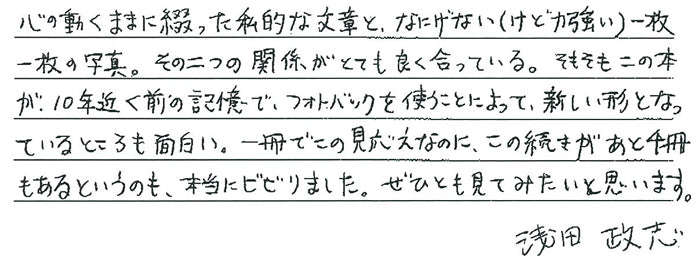 心の動くままに綴った私的な文章と、なにげない(けど力強い)一枚
一枚の写真。その二つの関係がとても良く合っている。そもそもこの本
が、10年近く前の記憶で、フォトバックを使うことによって、新しい形となっ
ているところも面白い。一冊でこの見応えなのに、この続きがあと4冊
もあるというのも、本当にビビりました。ぜひとも見てみたいと思います。
浅田 政志